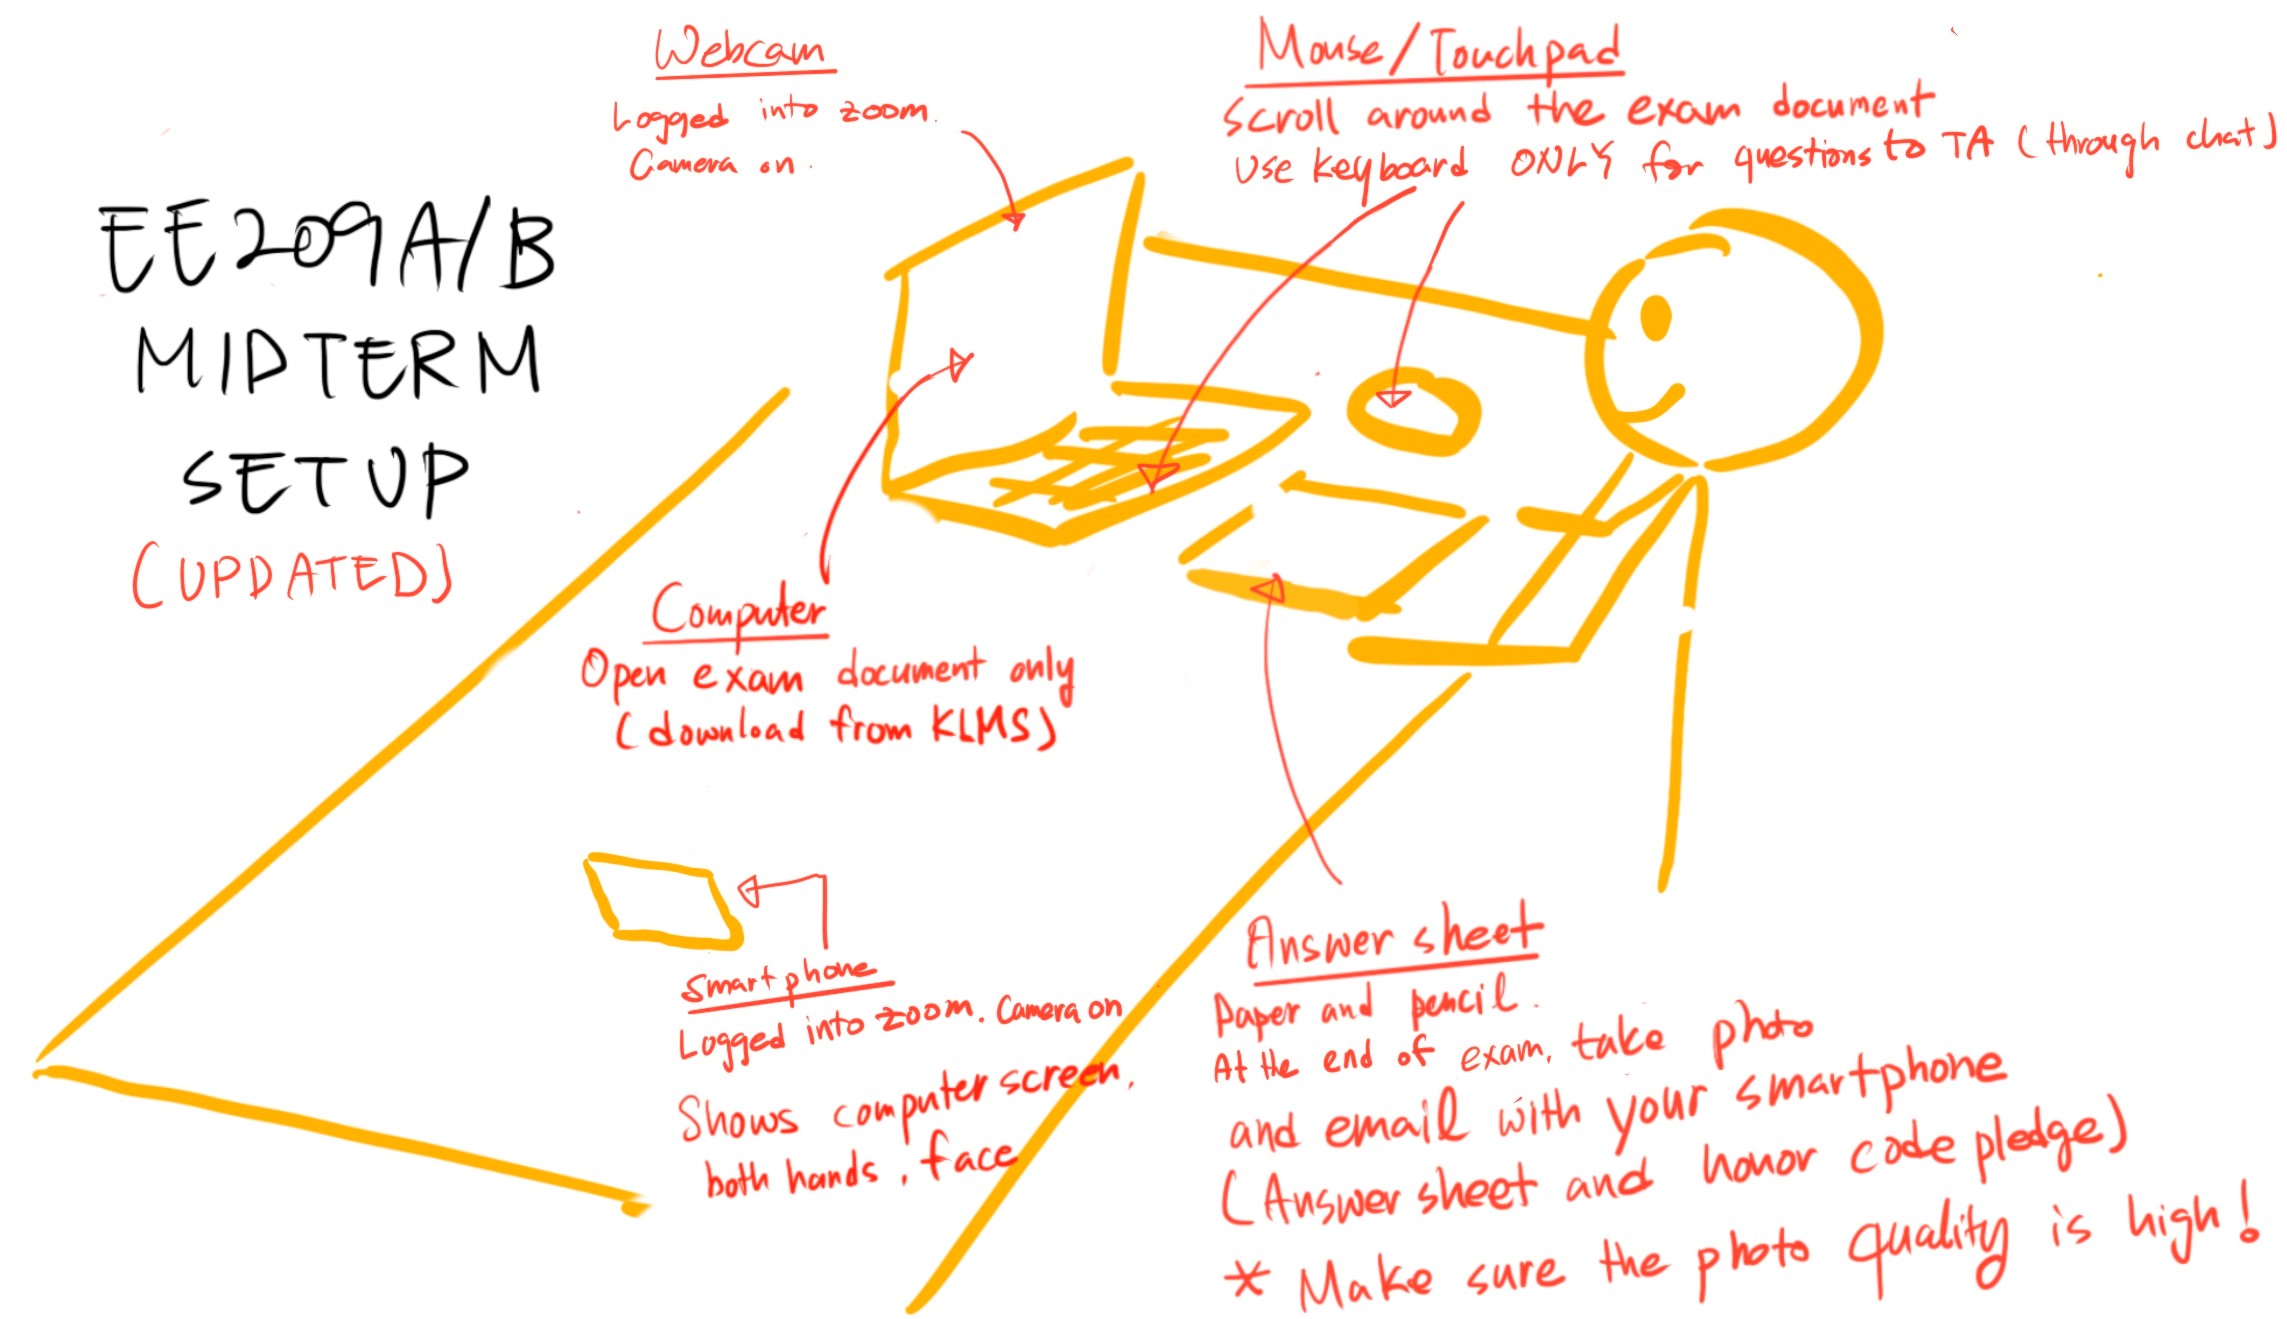 EE209A/B
MIDTERM
SETUP
(UPDATED)
Webcam
Logged into zoom.
Camera on.
Mouse/Touchpad
Scroll around the exam document
Use keyboard ONLY for questions to TA (through chat)
Computer
Open exam document only
(download from KLMS)
Smartphone
Logged into zoom. Camera on
Shows computer screen,
both hands, face
Answer sheet
Paper and pencil.
At the end of exam, take photo
and email with your smartphone
(Answer sheet and honor code pledge)
* Make sure the photo quality is high!